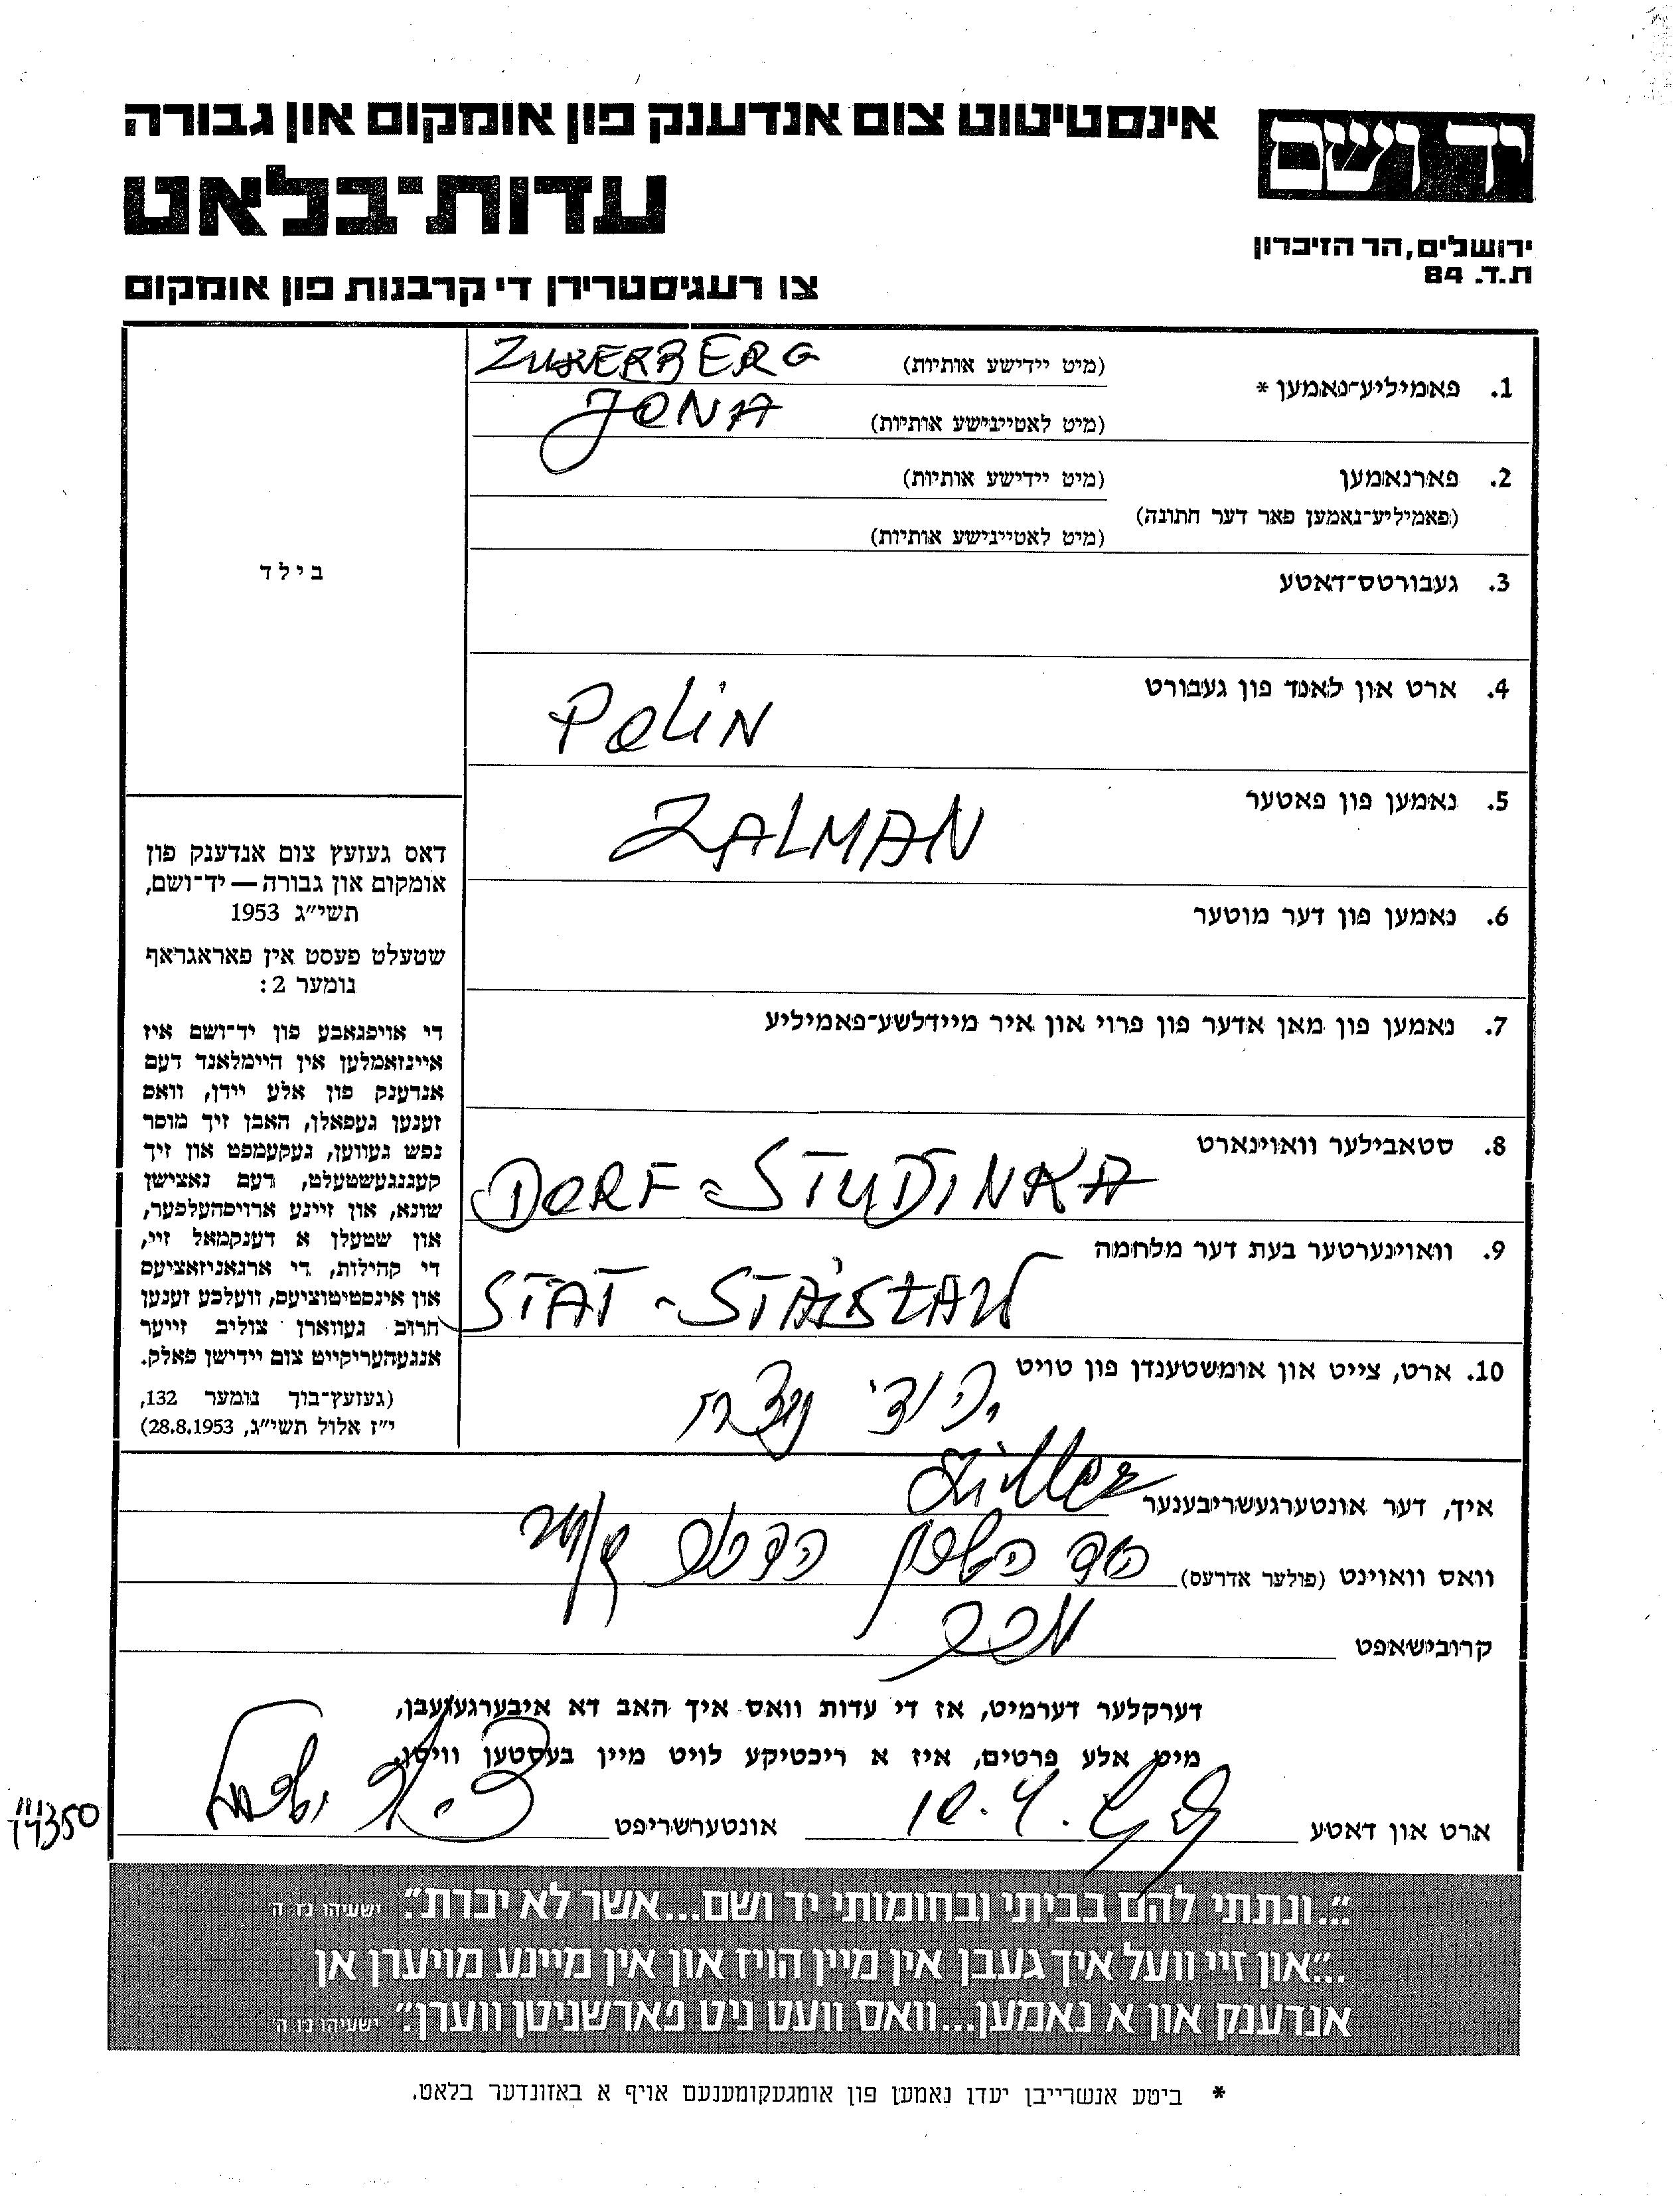 אינסטיטוט צום אנדענק פון אומקום און גבורה
עדות־בלאט
צו רעגיסטרירן די קרבנות פון אומקום
יד ושם
ירושלים, הר הזיכרון
ת.ד. 84
1. פאמיליע־נאמען * (מיט יידישע אותיות) ZUKERBERG
(מיט לאטייבישע אותיות) JONA
2. פארנאמען (מיט יידישע אותיות)
(פאמיליע־נאמען פאר דער חתונה)
(מיט לאטייבישע אותיות)
בילד
3. געבורטס־דאטע
4. ארט און לאנד פון געבורט POLIN
5. נאמען פון פאטער ZALMAN
6. נאמען פון דער מוטער
7. נאמען פון מאן אדער פון פרוי און איר מיידלשע־פאמיליע
8. סטאבילער וואוינארט DORF - STUDINKA
9. וואוינערטער בעת דער מלחמה STAT -
10. ארט, צייט און אומשטענדן פון טויט
דאס געזעץ צום אנדענק פון
אומקום און גבורה — יד־ושם,
תשי״ג 1953
שטעלט פעסט אין פאראגראף
נומער 2:
די אויפגאבע פון יד־ושם איז
איינזאמלען אין היימלאנד דעם
אנדענק פון אלע יידן, וואס
זענען געפאלן, האבן זיך מוסר
נפש געווען, געקעמפט און זיך
קעגנגעשטעלט, דעם נאצישן
שונא, און זיינע ארויסהעלפער,
און שטעלן א דענקמאל זיי,
די קהילות, די ארגאניזאציעס
און אינסטיטוציעס, וועלכע זענען
חרוב געווארן צוליב זייער
אנגעהעריקייט צום יידישן פאלק.
(געזעץ־בוך נומער 132,
י״ז אלול תשי״ג, 28.8.1953)
איך, דער אונטערגעשריבענער
וואס וואוינט (פולער אדרעס)
קרובישאפט מכר
דערקלער דערמיט, אז די עדות וואס איך האב דא איבערגעגעבן,
מיט אלע פרטים, איז א ריכטיקע לויט מיין בעסטען וויסן.
ארט און דאטע 10.4. אונטערשריפט
״...ונתתי להם בביתי ובחומותי יד ושם...אשר לא יכרת״. ישעיהו נו, ה
...״און זיי וועל איך געבן אין מיין הויז און אין מיינע מויערן אן
אנדענק און א נאמען...וואס וועט ניט פארשניטן ווערן״. ישעיהו נו, ה
* ביטע אנשרייבן יעדן נאמען פון אומגעקומענעם אויף א באזונדער בלאט.